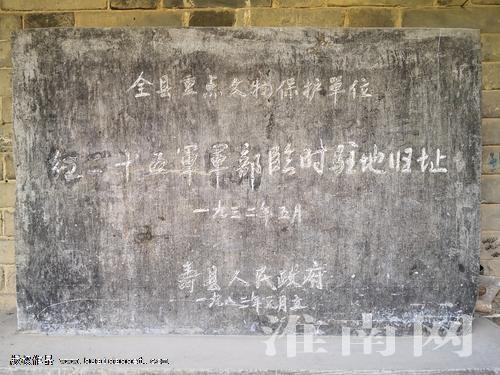 全县重点文物保护單位
红二十五軍軍部臨时駐地旧址
一九三二年五月
寿县人民政府
一九八二年五月立
淮南网